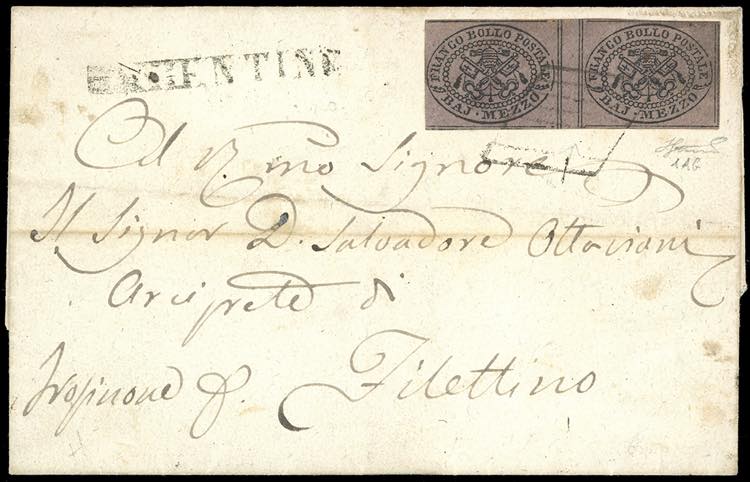 FERENTINE
FRANCO BOLLO POSTALE
BAJ · MEZZO
FRANCO BOLLO POSTALE
BAJ · MEZZO
1AG
Al Rmo Signore
Il Signor D. Salvadore Ottaviani
Arciprete di
Frosinone p. Filettino